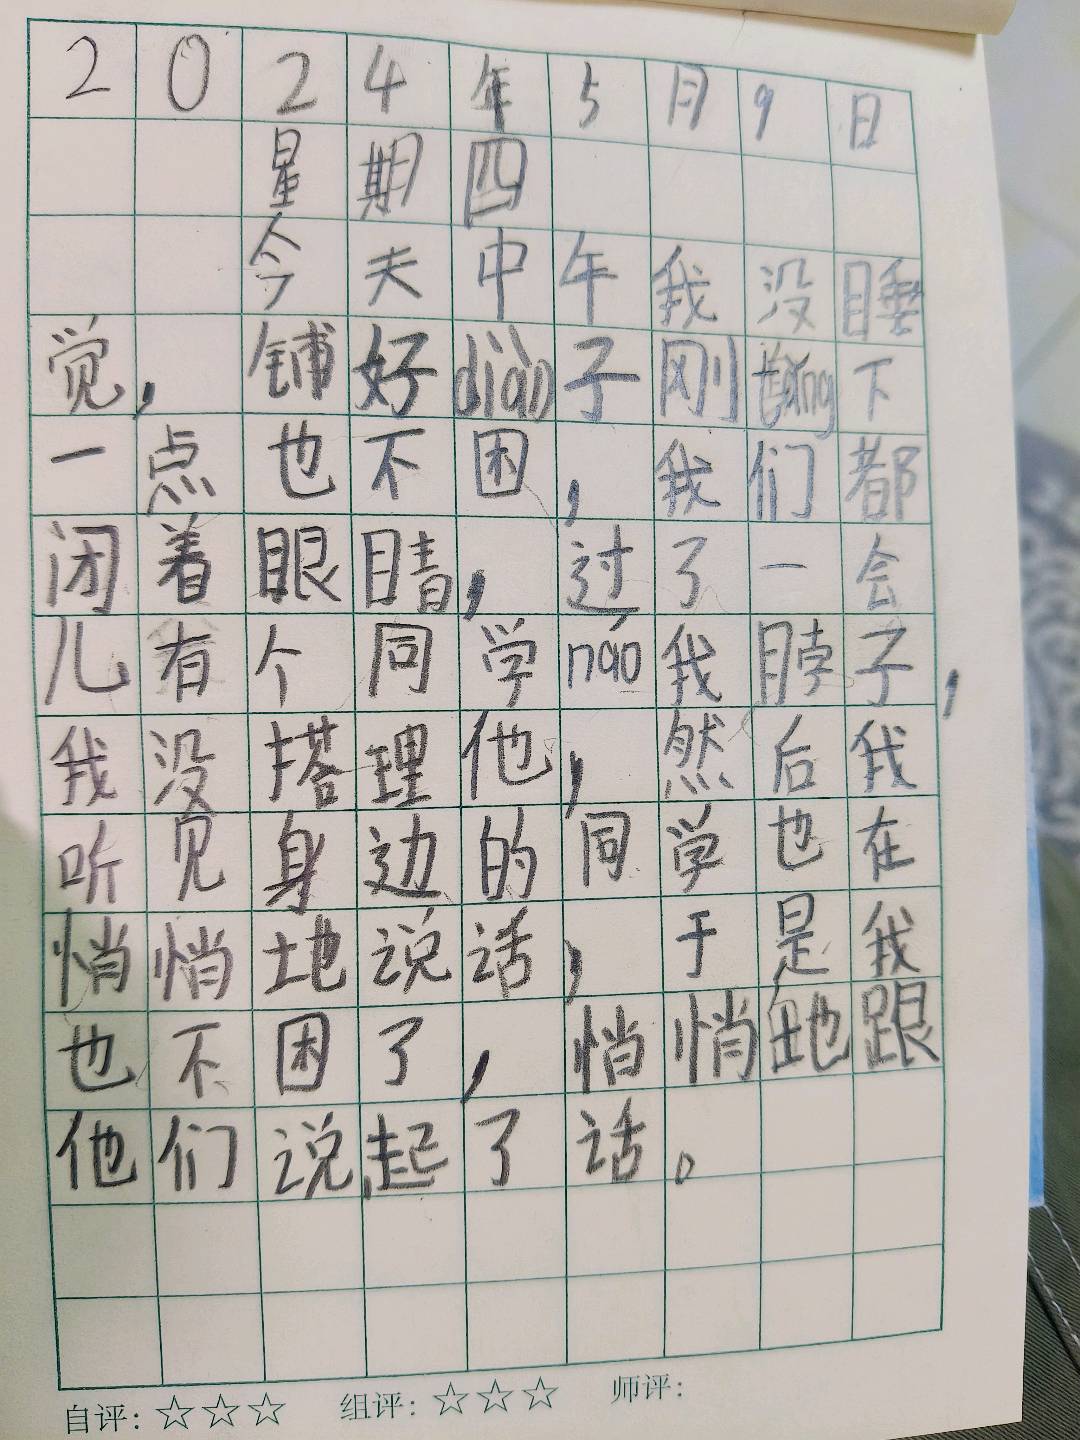 2024年5月9日
星期四
今天中午我没睡
觉，铺好diàn子刚tǎng下
一点也不困，我们都
闭着眼睛，过了一会
儿有个同学náo我脖子，
我没搭理他，然后我
听见身边的同学也在
悄悄地说话，于是我
也不困了，悄悄地跟
他们说起了话。
自评：☆☆☆ 组评：☆☆☆ 师评：